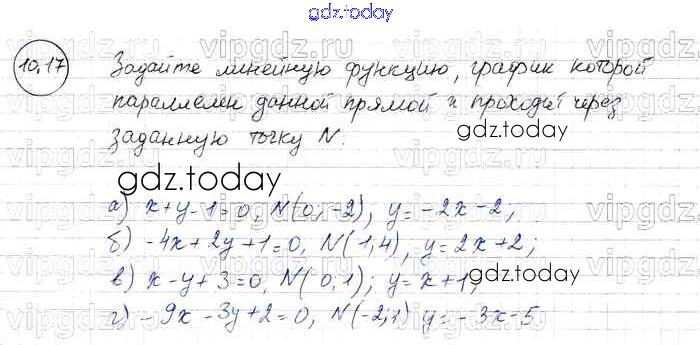 gdz.today
10.17
Задайте линейную функцию, график которой
параллелен данной прямой и проходит через
заданную точку N.
gdz.today
gdz.today
а) x+y-1=0, N(0,-2), y=-2x-2;
б) -4x+2y+1=0, N(1,4), y=2x+2;
в) x-y+3=0, N(0,1); y=x+1,
gdz.today
г) -9x-3y+2=0, N(-2,1) y=-3x-5